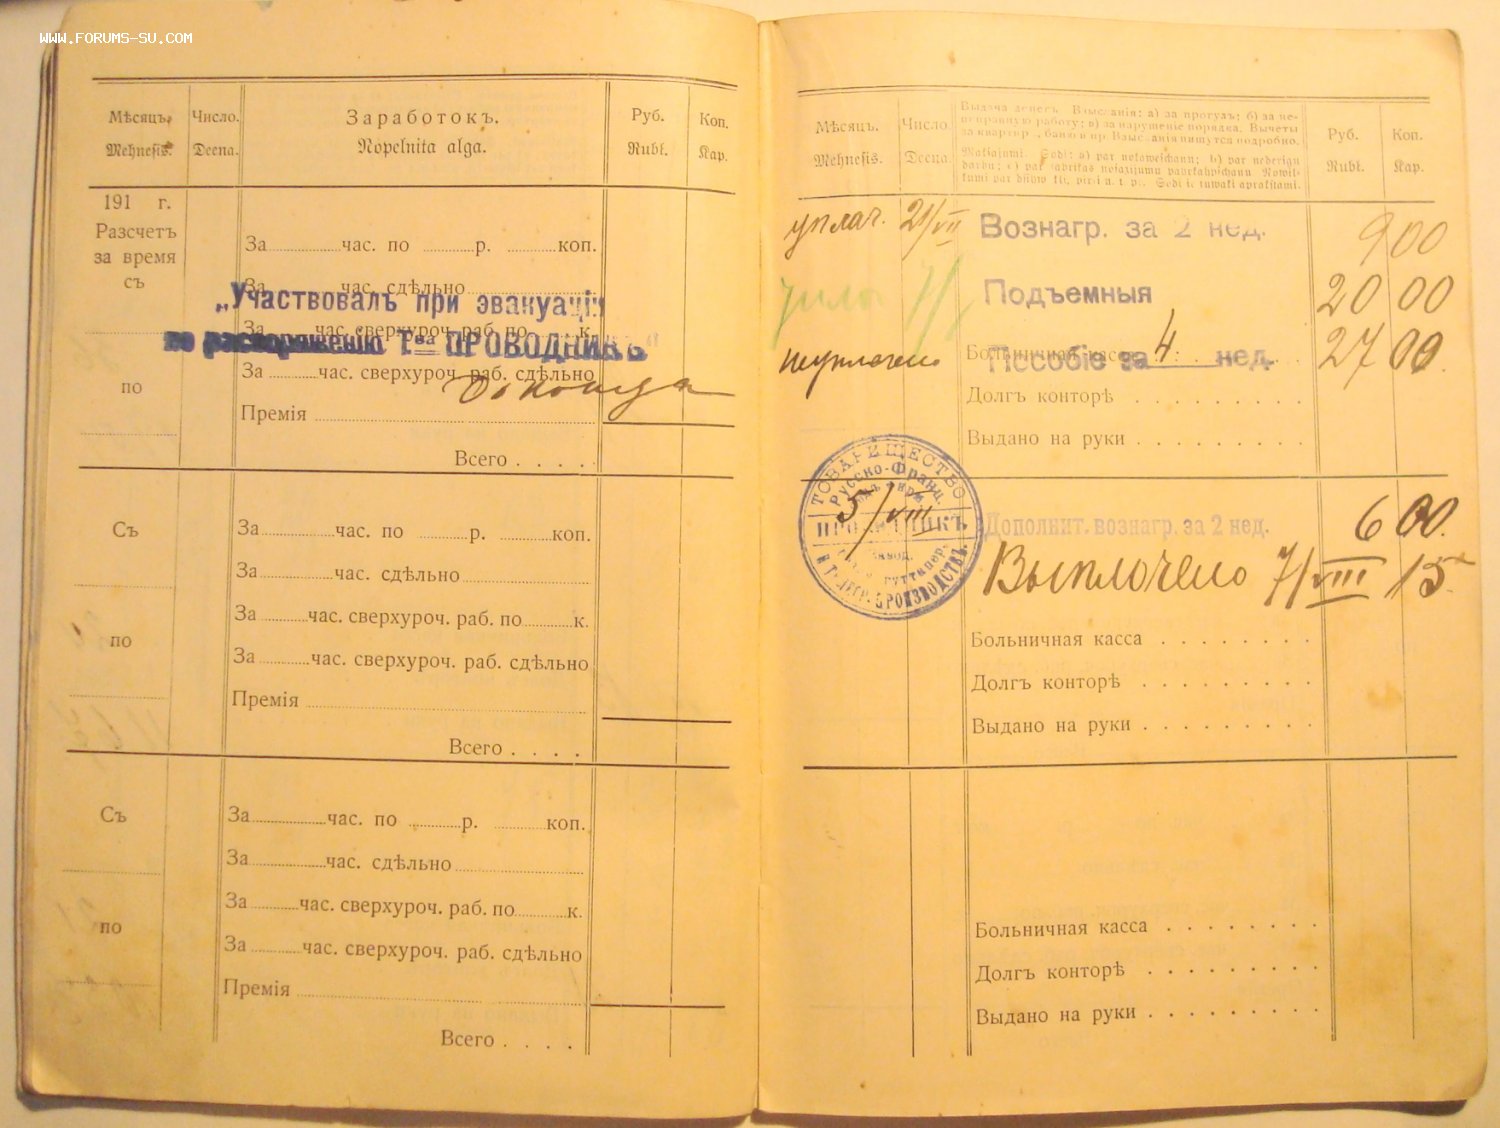 WWW.FORUMS-SU.COM
Мѣсяцъ. Число. Заработокъ. Руб. Коп.
Mehnesis. Deena. Nopelnita alga. Rubl. Kap.
191 г.
Разсчетъ
за время
съ
по
За час. по р. коп.
За час. сдѣльно
„Участвовалъ при эвакуаціи
За час. сверхуроч. раб. по к.
по распоряженію Тва ПРОВОДНИКЪ“
За час. сверхуроч. раб. сдѣльно
до конца
Премія
Всего
Съ
по
За час. по р. коп.
За час. сдѣльно
За час. сверхуроч. раб. по к.
За час. сверхуроч. раб. сдѣльно
Премія
Всего
Съ
по
За час. по р. коп.
За час. сдѣльно
За час. сверхуроч. раб. по к.
За час. сверхуроч. раб. сдѣльно
Премія
Всего
Мѣсяцъ. Число Руб. Коп.
Mehnesis. Deena. Rubl. Kap.
Выдача денегъ. Взысканія: а) за прогулъ; б) за не-
исправную работу; в) за нарушеніе порядка. Вычеты
за квартир., баню и пр. Взысканія пишутся подробно.
уплач. 21/VII Вознагр. за 2 нед. 9 00
Подъемныя 20 00
Больничная касса
уплочено Пособіе за 4 нед. 27 00
Долгъ конторѣ
Выдано на руки
ТОВАРИЩЕСТВО
Русско-Франц.
ПРОВОДНИКЪ
5/VIII Дополнит. вознагр. за 2 нед. 6 00
Выплочено 7/VIII 15
Больничная касса
Долгъ конторѣ
Выдано на руки
Больничная касса
Долгъ конторѣ
Выдано на руки